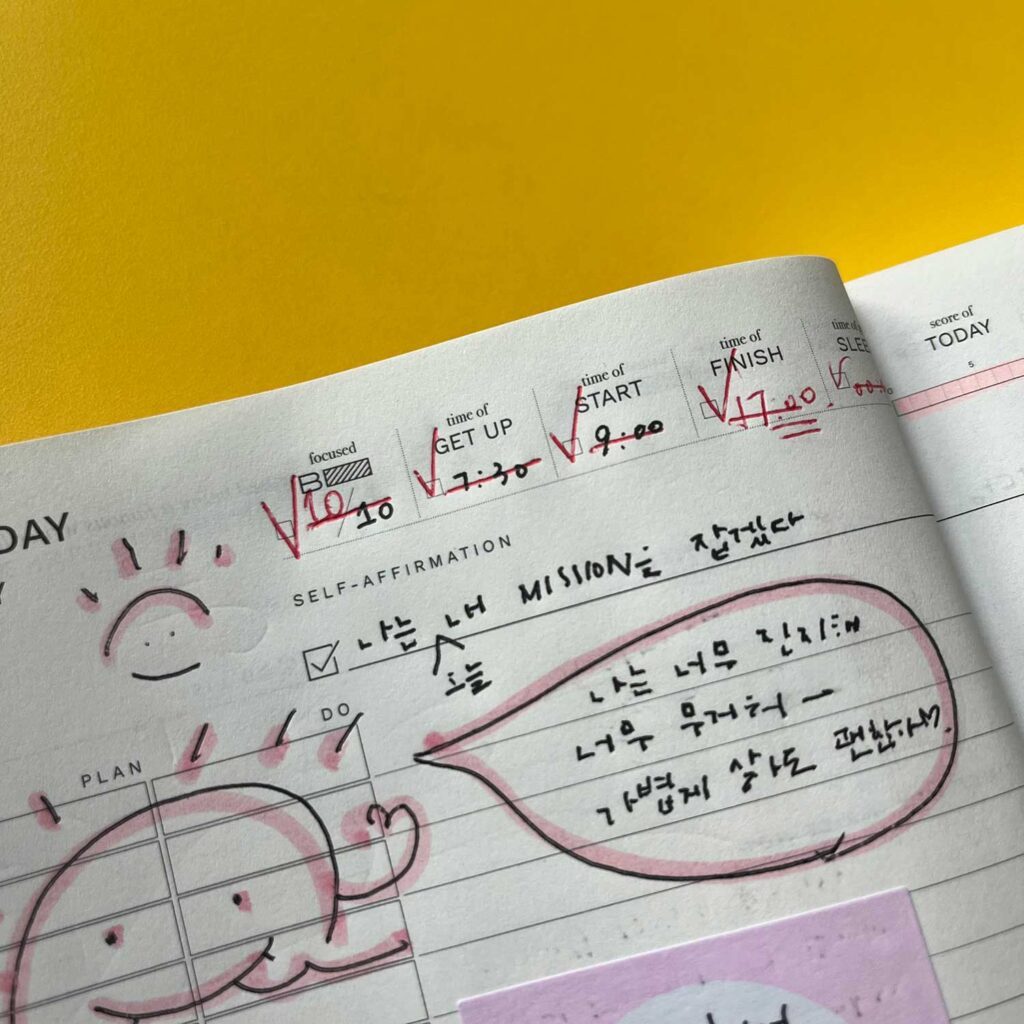 focused
10/10
time of
GET UP
7:30
time of
START
9:00
time of
FINISH
17:00
time of
SLEE
score of
TODAY
5
DAY
Y
SELF-AFFIRMATION
나는 내 MISSION을 잡겠다
오늘
나는 너무 진지해
너무 무거워 ー
가볍게 살아도 괜찮아
PLAN
DO